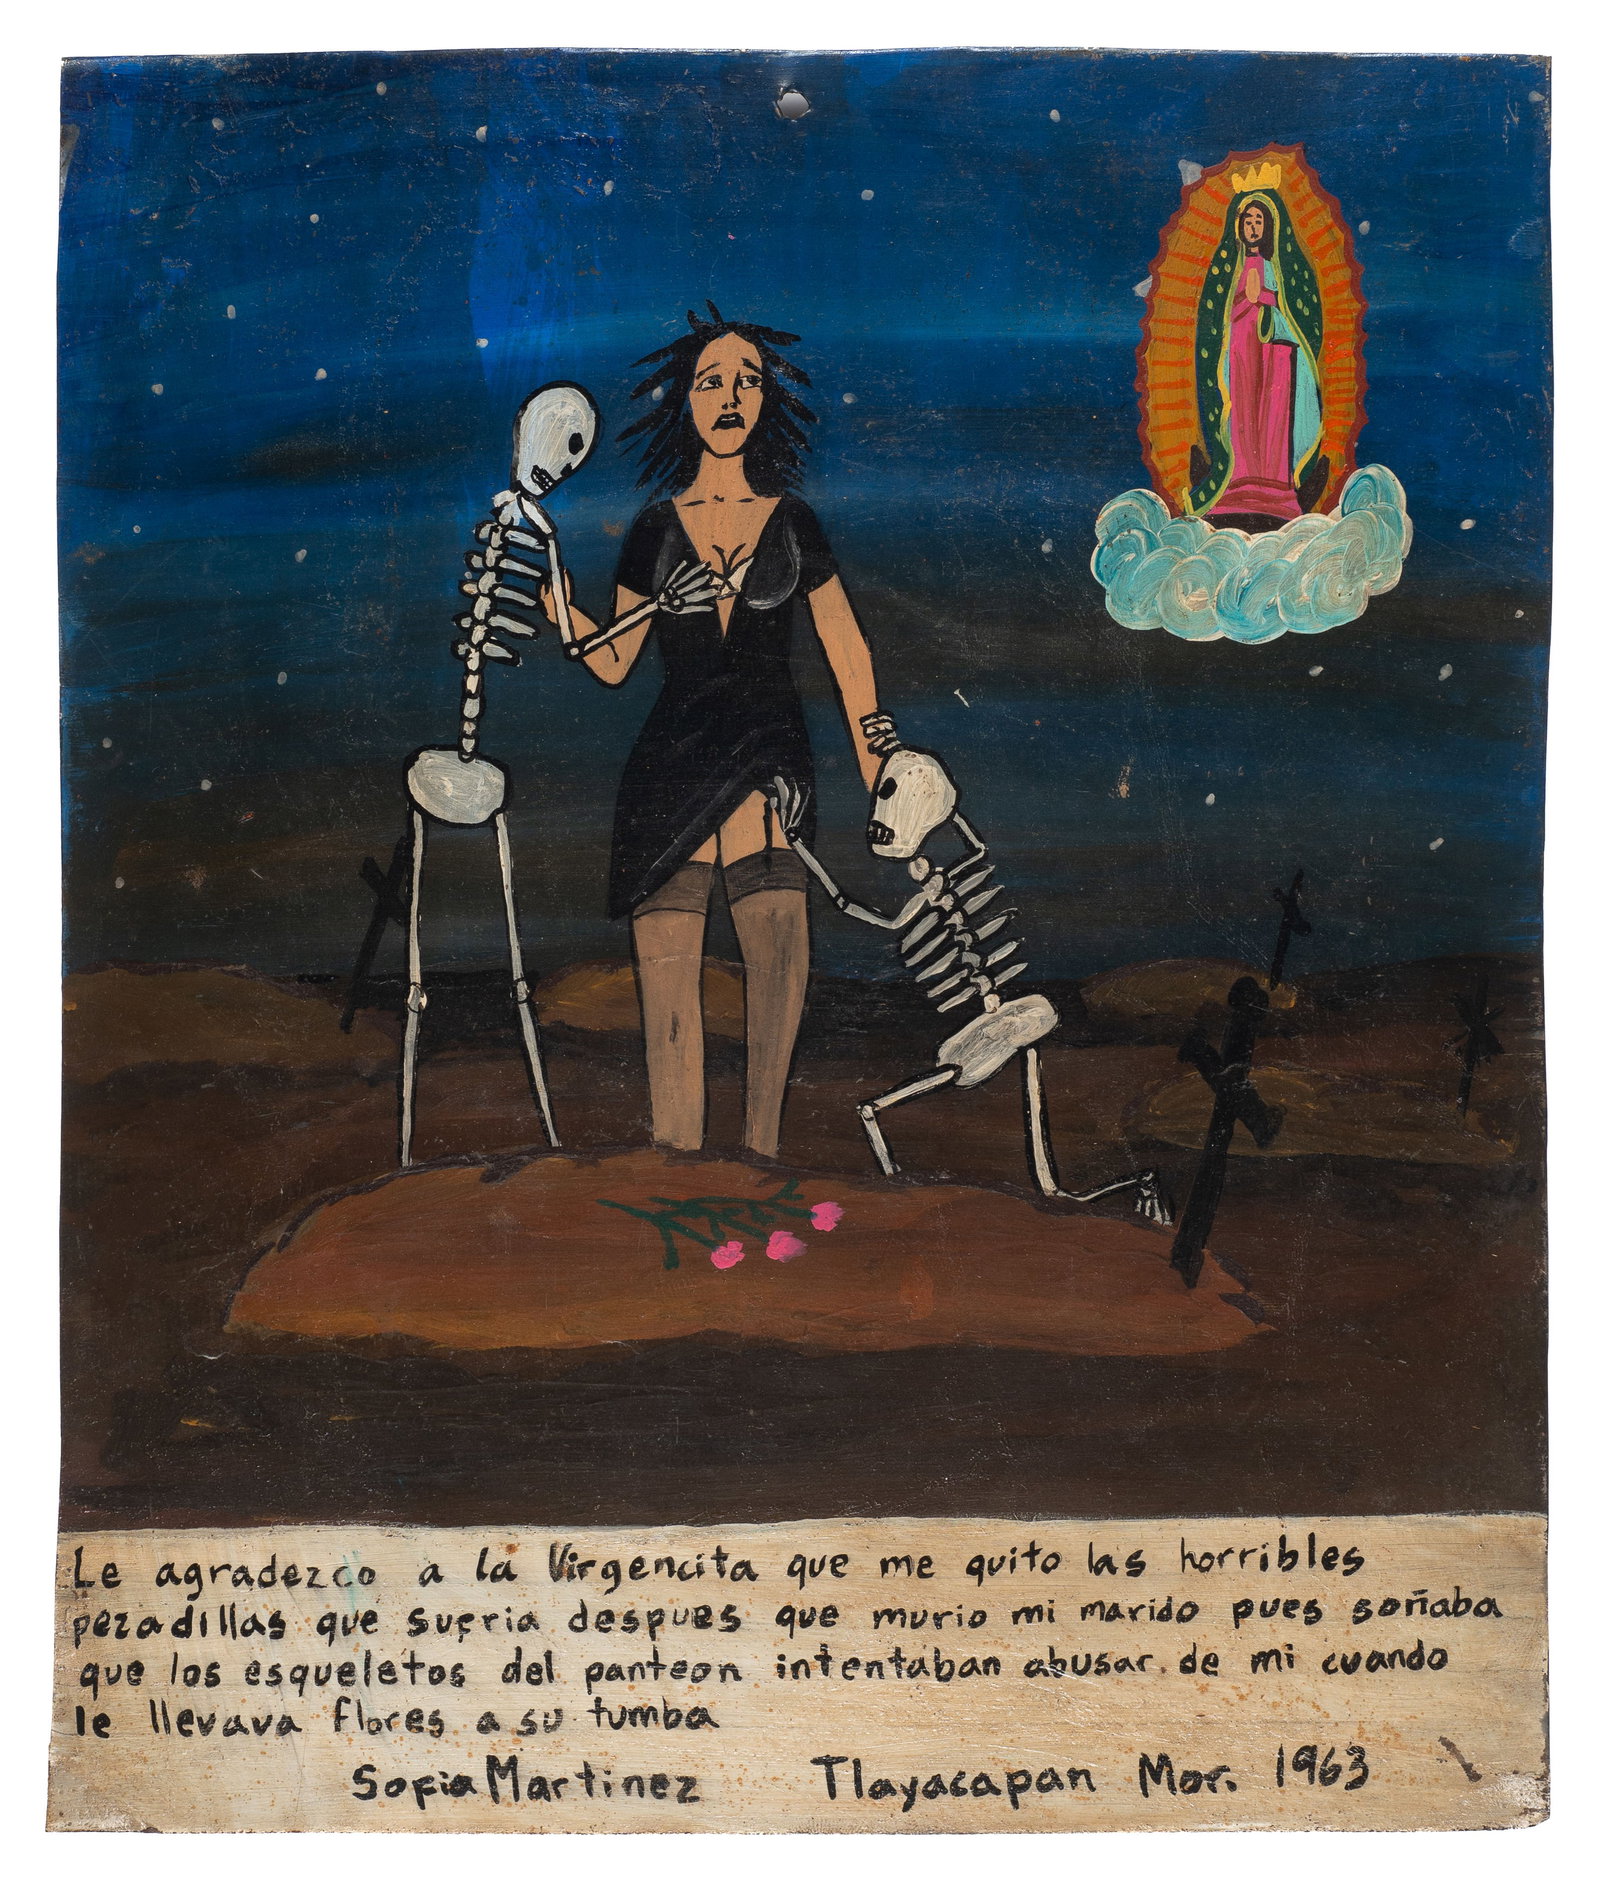 Le agradezco a la Virgencita que me quito las horribles
pezadillas que sufria despues que murio mi marido pues soñaba
que los esqueletos del panteon intentaban abusar de mi cuando
le llevava flores a su tumba
Sofia Martinez Tlayacapan Mor. 1963